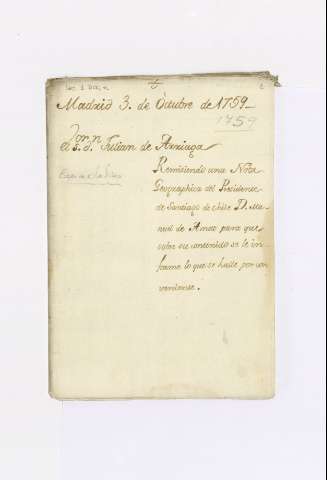 Madrid 3. de Octubre de 1759_
1759
el S.r D. Julian de Arriaga
Remitiendo una Nota
Geographica del Presidente
de Santiago de chile D. Ma-
nuel de Amat para que
sobre su contenido se le in-
forme lo que se halle por con-
veniente.